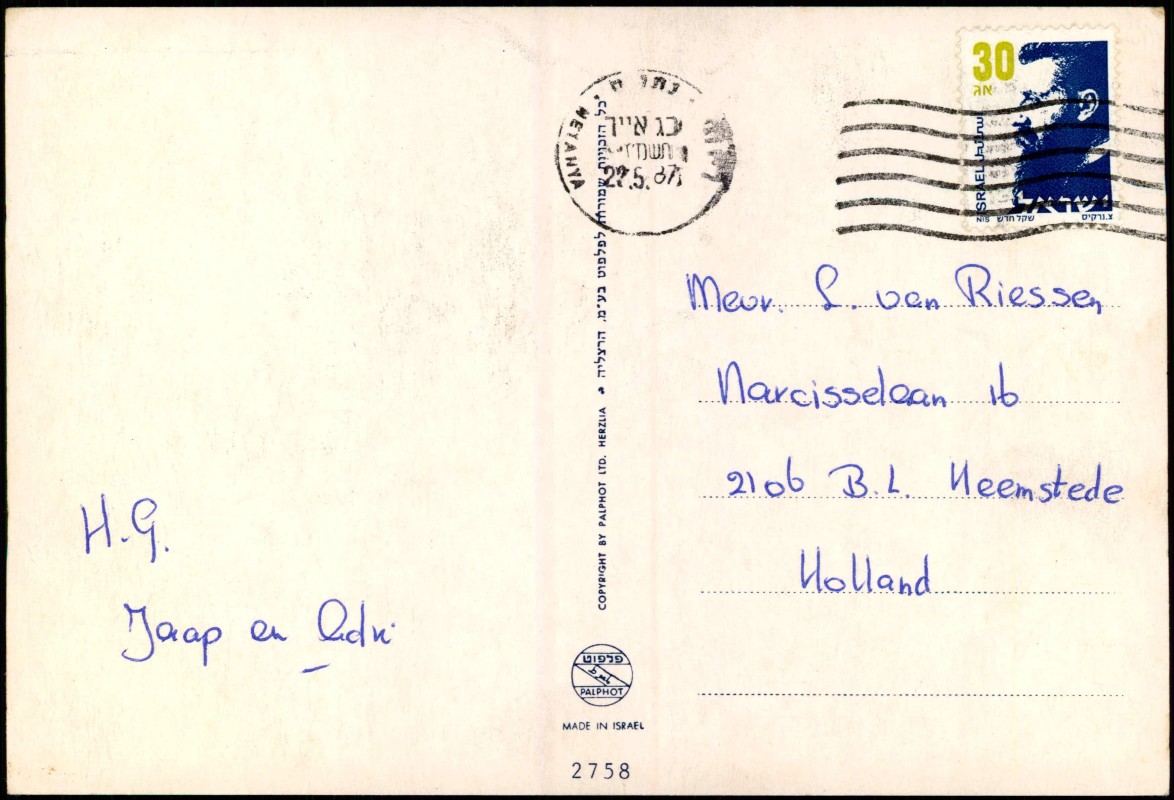 H.G.
Jaap en Adri
נתניה
NETANYA
כג אייר
תשמ"ז
22.5.87
כל הזכויות שמורות לפלפוט בע״מ, הרצליה
COPYRIGHT BY PALPHOT LTD. HERZLIA
פלפוט
PALPHOT
MADE IN ISRAEL
2758
30
אג
ISRAEL
ישראל
NIS שקל חדש
צ. נרקיס
Mevr. L. van Riessen
Narcisselaan 1b
2106 B.L. Heemstede
Holland